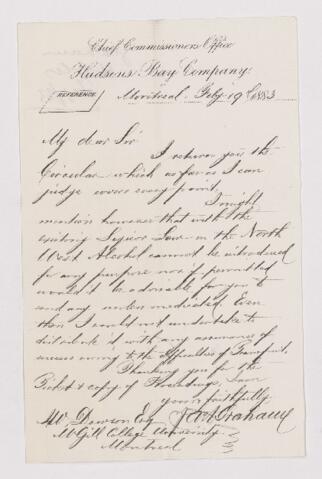 Chief Commissioners Office
Hudsons Bay Company
REFERENCE
Montreal Feby 19 1883
My dear Sir
I return you the
Circular which as far as I can
judge covers every point.
I might
mention however that with the
existing Liquor Law in the North
West Alcohol cannot be introduced
for any purpose nor if permitted
would it be advisable for you to
send any unless medicated. Even
then I could not undertake to
distribute it with any assurance of
success owing to the difficulties of Transport.
Thanking you for the
Ticket & copy of Proceedings, I am
yours faithfully
J A Grahame
Dawson Esq
McGill College University
Montreal